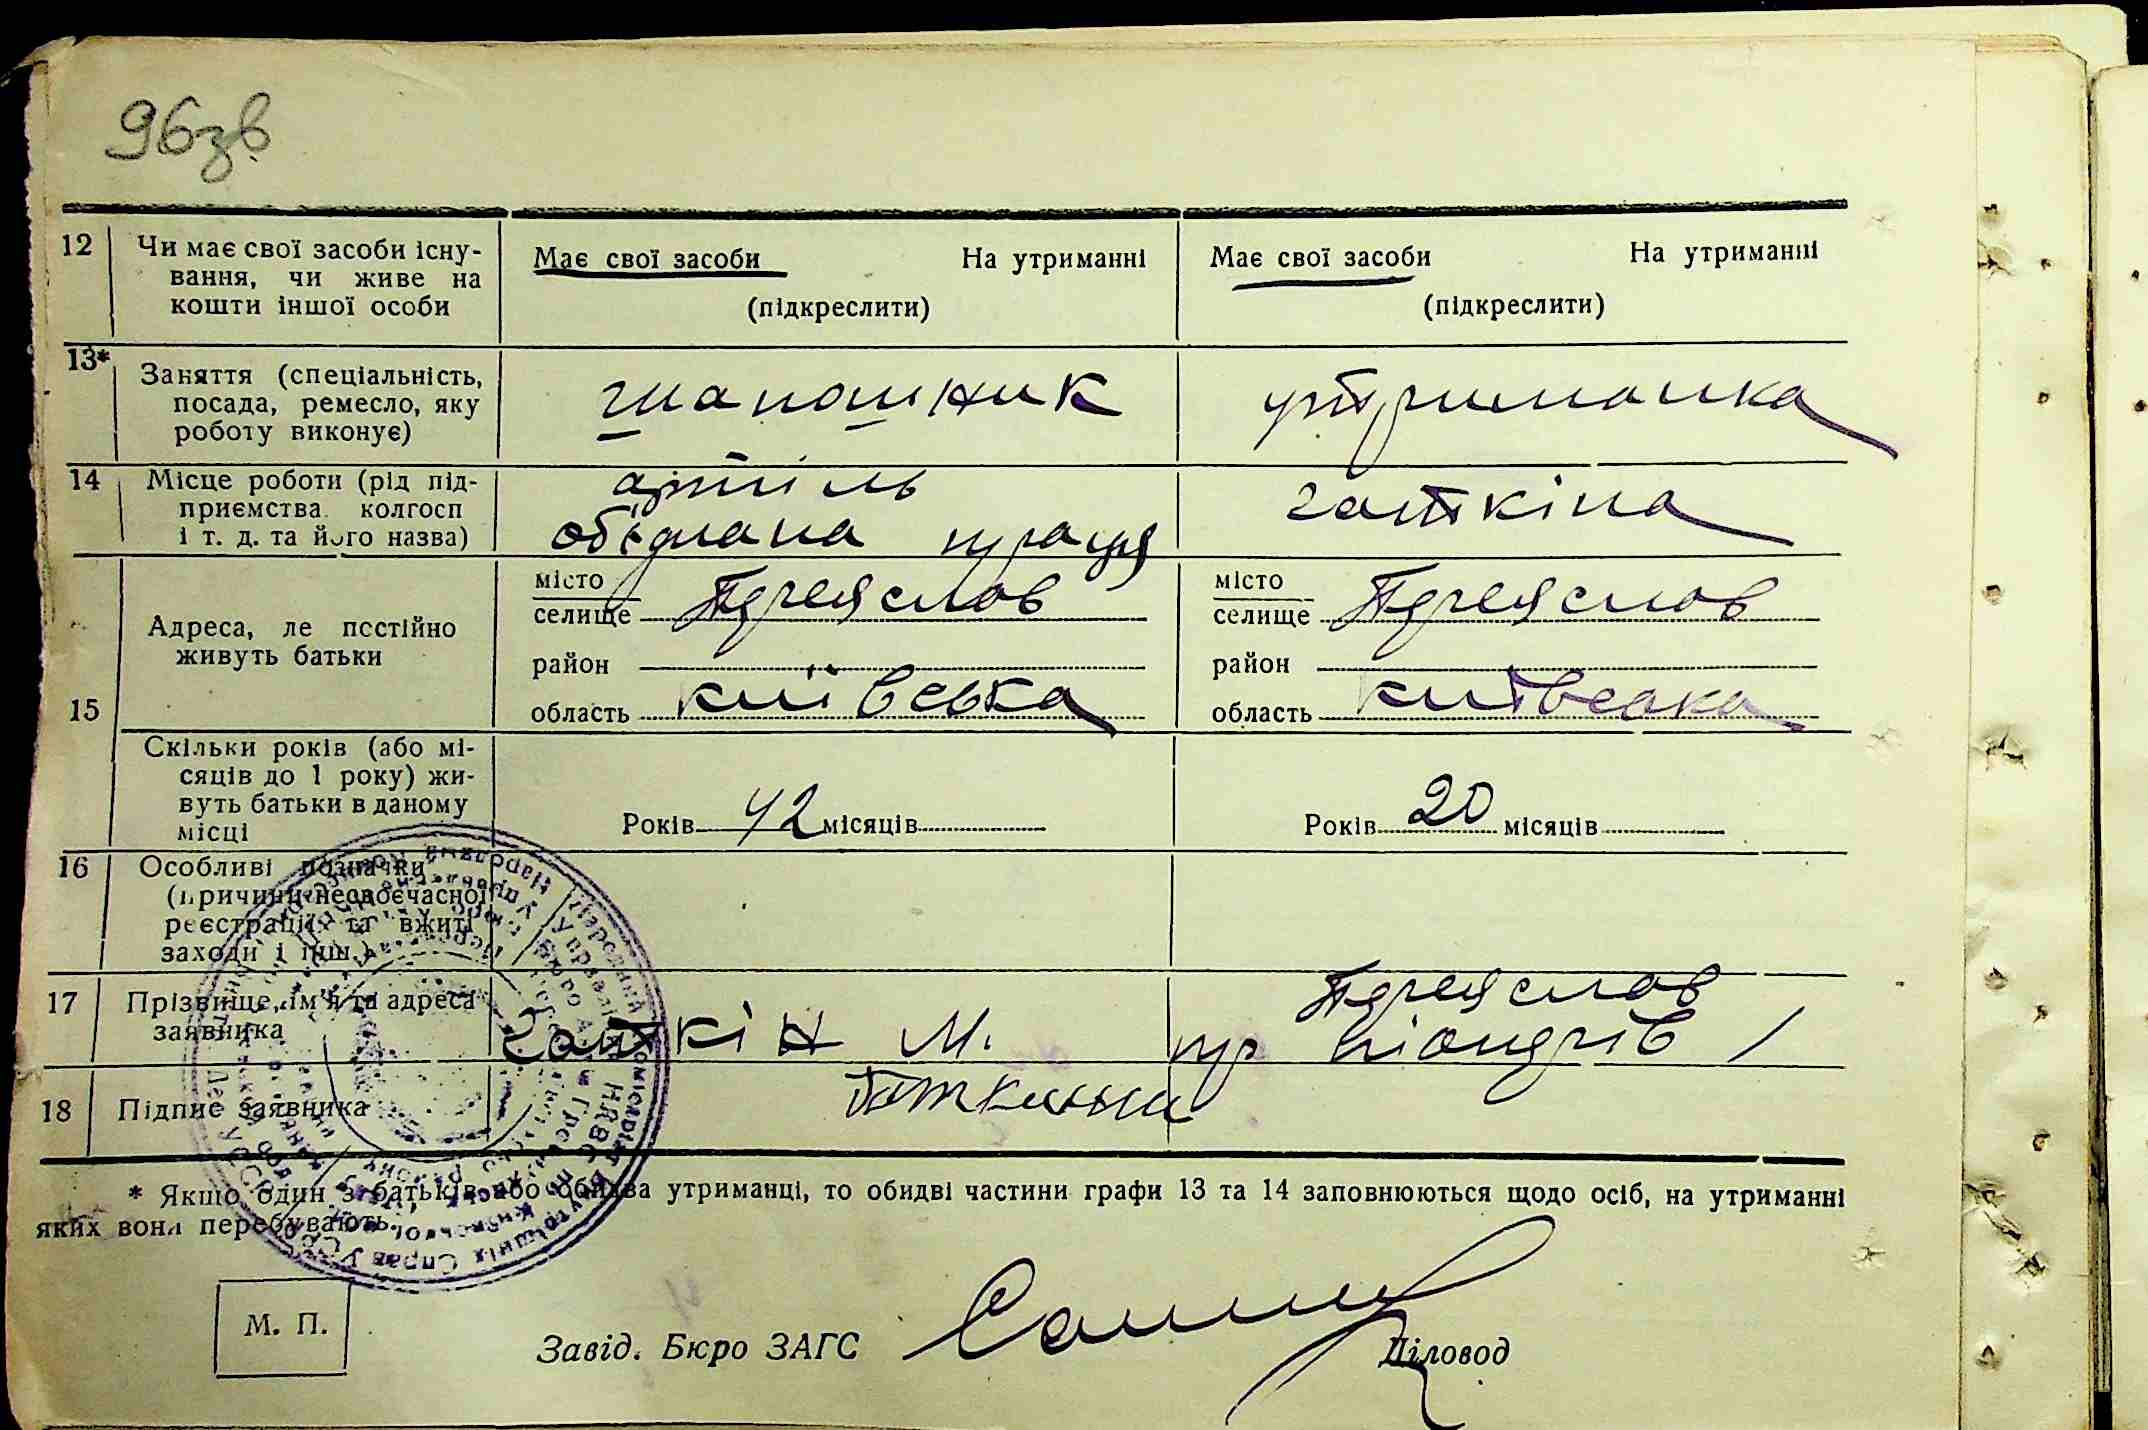 96зв
12 Чи має свої засоби існу-
вання, чи живе на
кошти іншої особи
Має свої засоби На утриманні
(підкреслити)
Має свої засоби На утриманні
(підкреслити)
13* Заняття (спеціальність,
посада, ремесло, яку
роботу виконує)
шапошник
утриманка
14 Місце роботи (рід під-
приємства. колгосп
і т. д. та його назва)
артіль
обєднана праця
Гаткіна
15 Адреса, де постійно
живуть батьки
місто
селище Переяслов
район
область київська
місто
селище Переяслов
район
область київська
Скільки років (або мі-
сяців до 1 року) жи-
вуть батьки в даному
місці
Років 42 місяців
Років 20 місяців
16 Особливі позначки
(причини несвоєчасної
реєстрації та вжиті
заходи і інш.)
17 Прізвище, ім'я та адреса
заявника
Гаткін М.
Переяслов
пр піонерів 1
18 Підпис заявника
* Якщо один з батьків або обидва утриманці, то обидві частини графи 13 та 14 заповнюються щодо осіб, на утриманні
яких вони перебувають.
М. П.
Завід. Бюро ЗАГС
Діловод